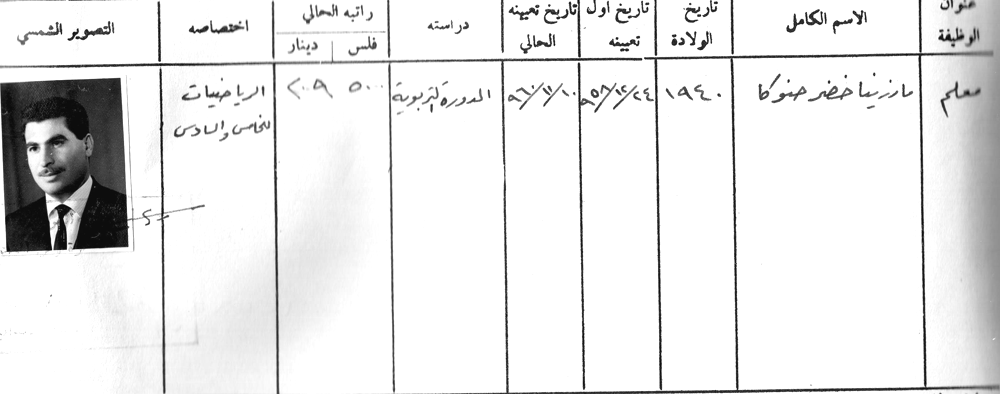 عنوان الوظيفة
الاسم الكامل
تاريخ الولادة
تاريخ اول تعيينه
تاريخ تعيينه الحالي
دراسته
راتبه الحالي
فلس
دينار
اختصاصه
التصوير الشمسي
معلم
خضر حنوكا
١٩٤٠
٩٥٨/١٢/٢٤
٩٦٠/١١/١٠
الدورة التربوية
٥٠٠
الرياضيات
للخامس والسادس